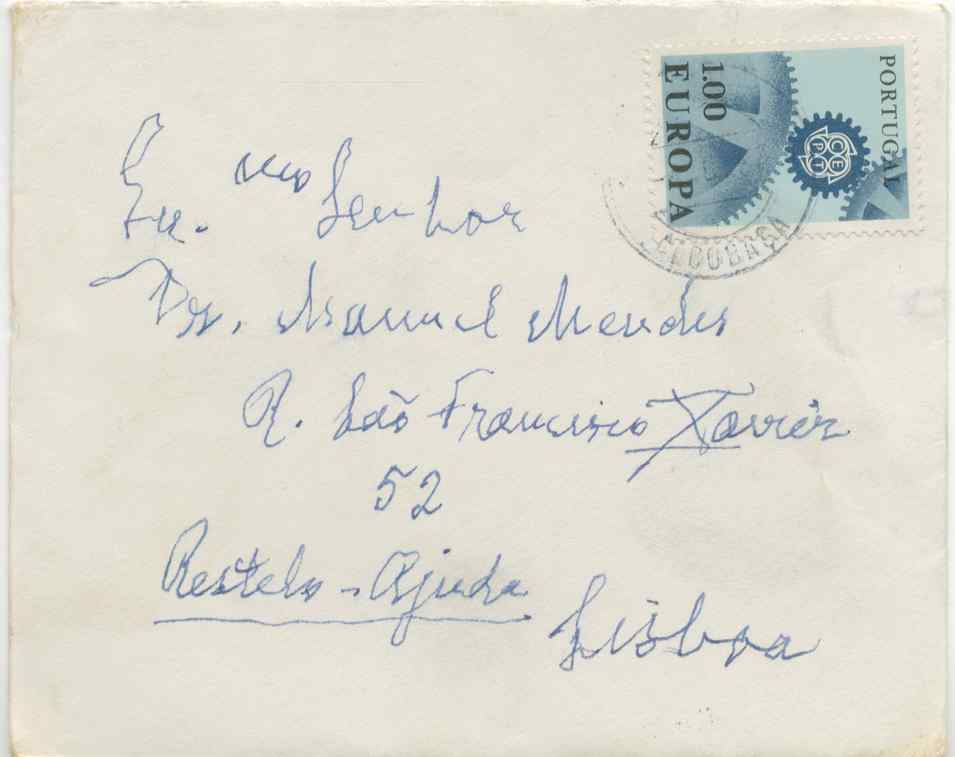 PORTUGAL
CEPT
1.00
EUROPA
ALCOBAÇA
Ex.mo Senhor
Dr. Manuel Mendes
R. São Francisco Xavier
52
Restelo - Ajuda
Lisboa